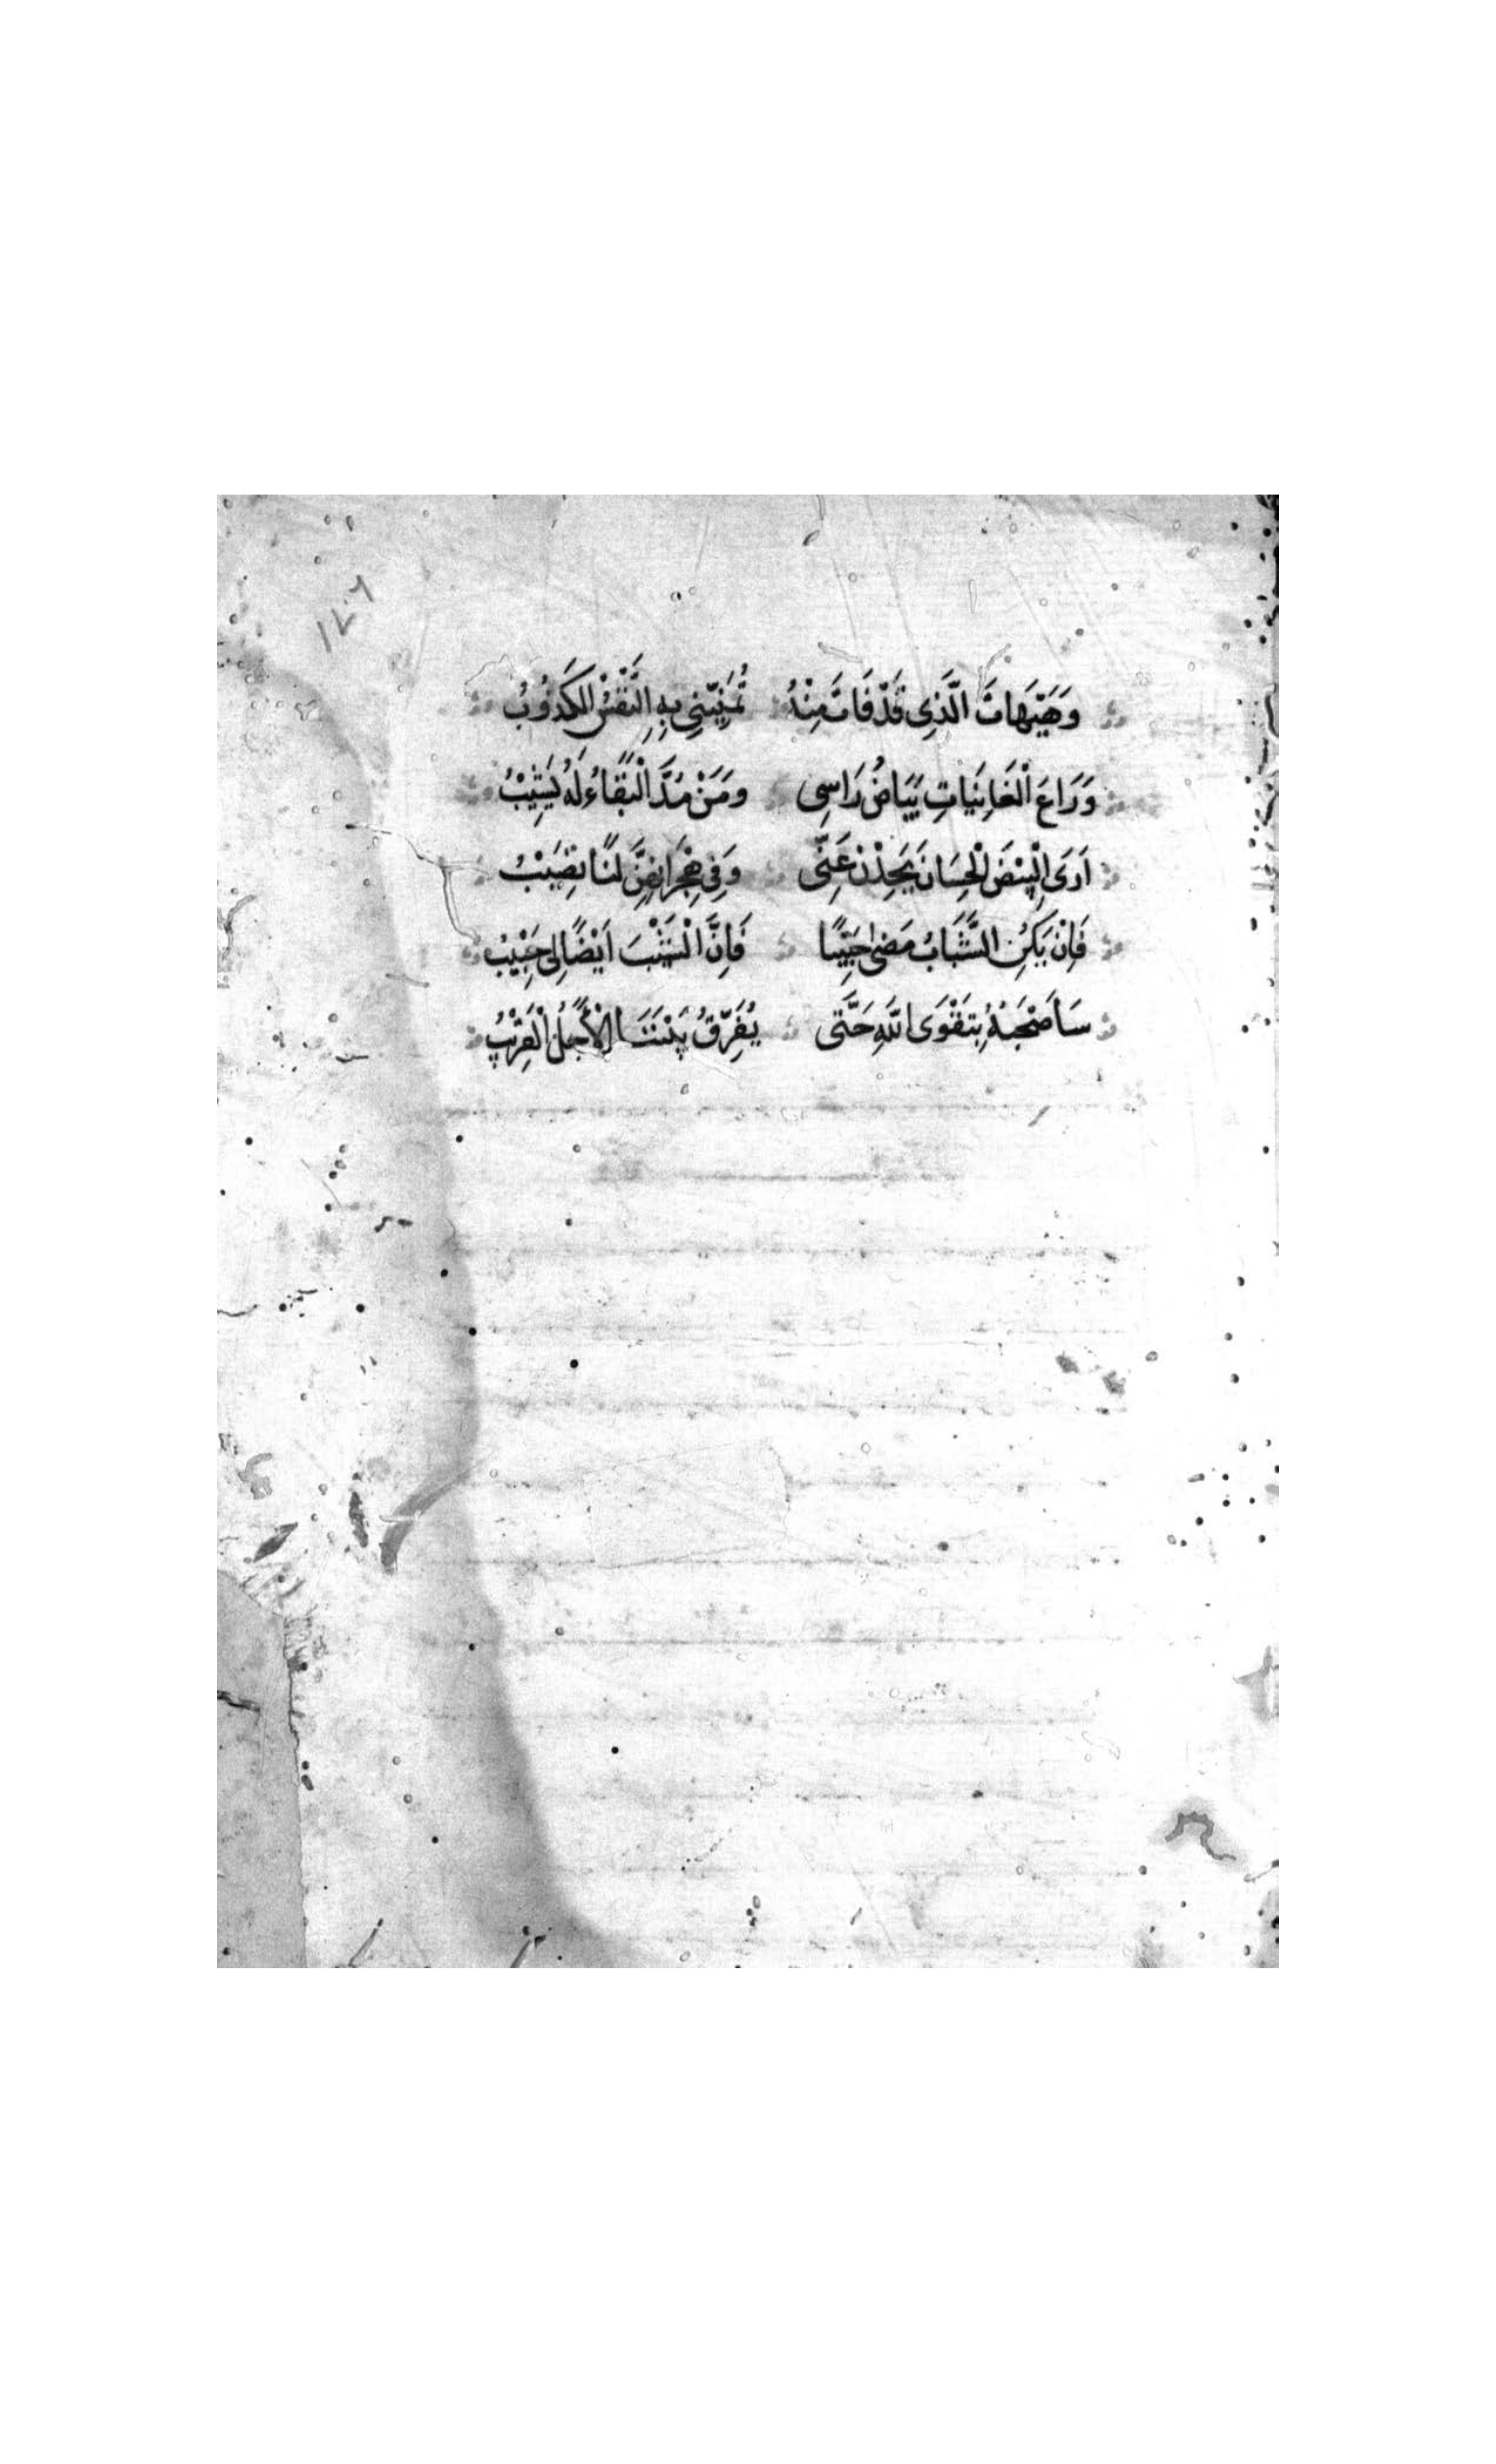 وَهَيْهَاتَ الَّذِي قَدْ فَاتَ مِنْهُ تُمَنِّيْنِي بِهِ النَّفْسُ الْكَذُوْبُ
وَرَاعَ الْغَانِيَاتِ بَيَاضُ رَاسِي وَمَنْ مُدَّ الْبَقَاءُ لَهُ يَشِيْبُ
اَرَى الْبِيْضَ الْحِسَانَ يَحِدْنَ عَنِّي وَفِي هِجْرَانِهِنَّ لَنَا نَصِيْبُ
فَاِنْ يَكُنِ الشَّبَابُ مَضَى حَبِيْبًا فَاِنَّ الشَّيْبَ اَيْضًا لِي حَبِيْبُ
سَاَصْحَبُهُ بِتَقْوَى اللهِ حَتَّى يُفَرِّقُ بَيْنَنَا الْاَجَلُ الْقَرِيْبُ